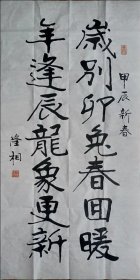 甲辰新春
歲別卯兔春回暖
年逢辰龍象更新
隆相